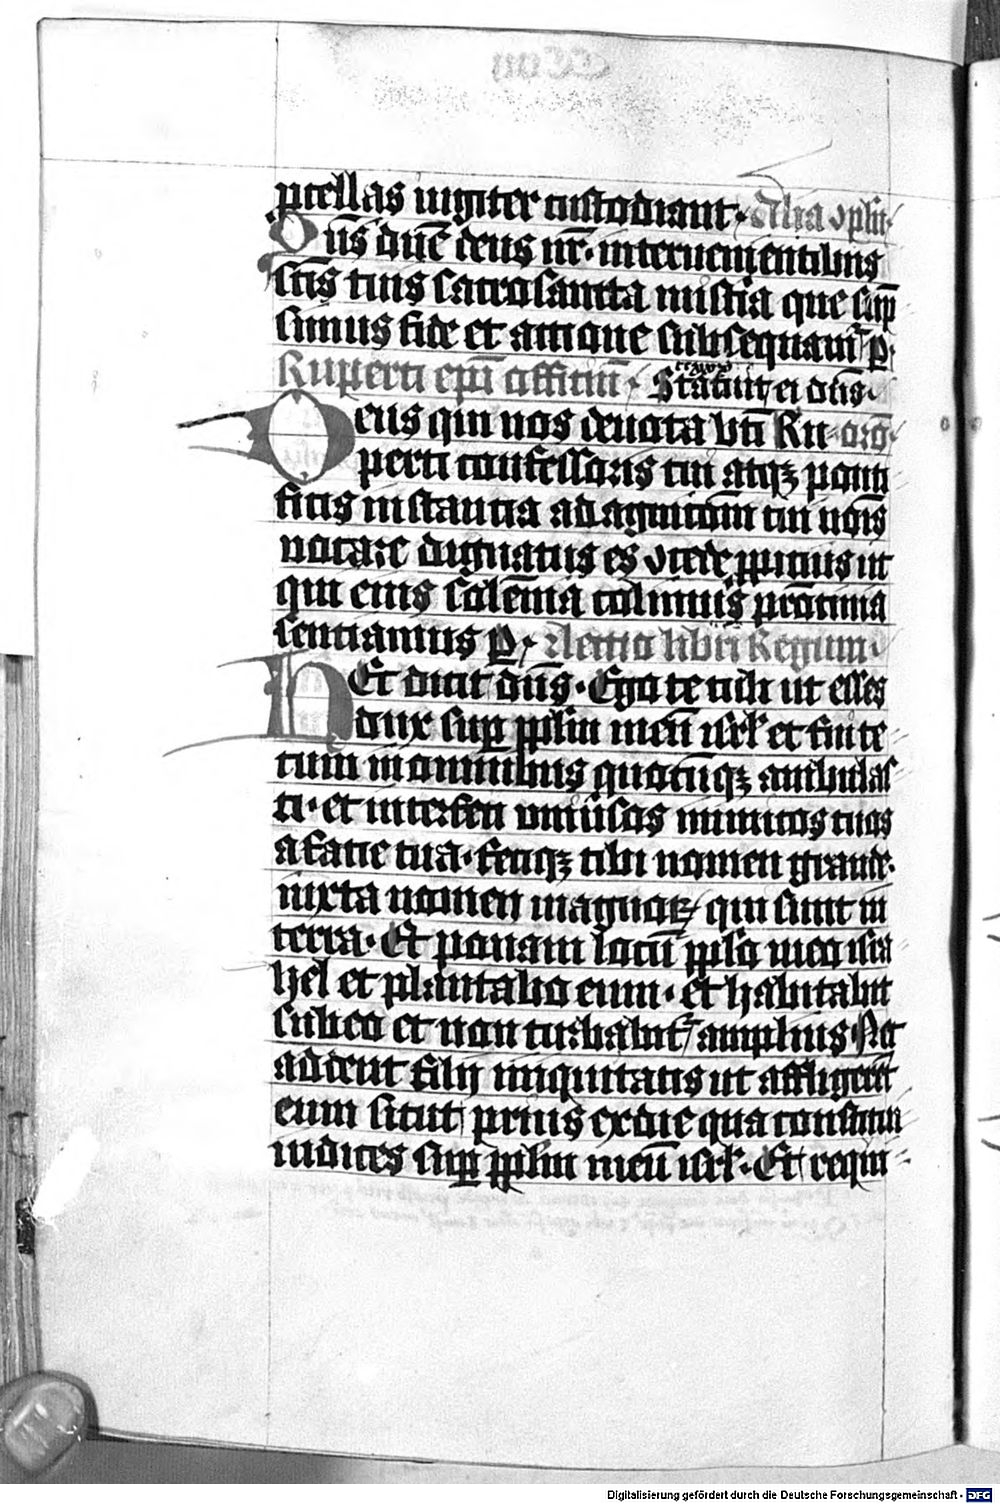 ptellas iugiter custodiant. Alia ɔplit.
Om̄s dn̄e deus nr̄. interuenientibus
sc̄is tuis sacrosancta mistīa que sūp
simus fide et actione subsequam̄ᷣ p.
Ruꝑerti ep̄i officiū. Statuit ei dn̄s.
Deus qui nos deuota bt̄i Ru- orō.
perti confessoris tui atqꝫ ponti
ficis instantia ad agnitōem tui nōis
uocare dignatus es ɔcede ꝓpicius ut
qui eius solem̄ia colimus prōtinia
sentiamus p. Lectio libri Regum.
Hec dicit dn̄s. Ego te tuli ut esses
dux suꝑ ppl̄m meū isrl̄ et fui te
cum in omnibus quocūqꝫ ambulas
ti. et interfeci vniūsos inimicos tuos
a facie tua. feciqꝫ tibi nomen grande.
iuxta nomen magnoꝝ qui sunt in
terra. Et ponam locū pplo meo isra
hel et plantabo eum. et habitabit
sub eo et non turbabit᷑ amplius Nec
addent filij iniquitatis ut affligent
eum sicut prius ex die qua constitui
iudices suꝑ ppl̄m meū isrl̄. Et requi
Digitalisierung gefördert durch die Deutsche Forschungsgemeinschaft - DFG